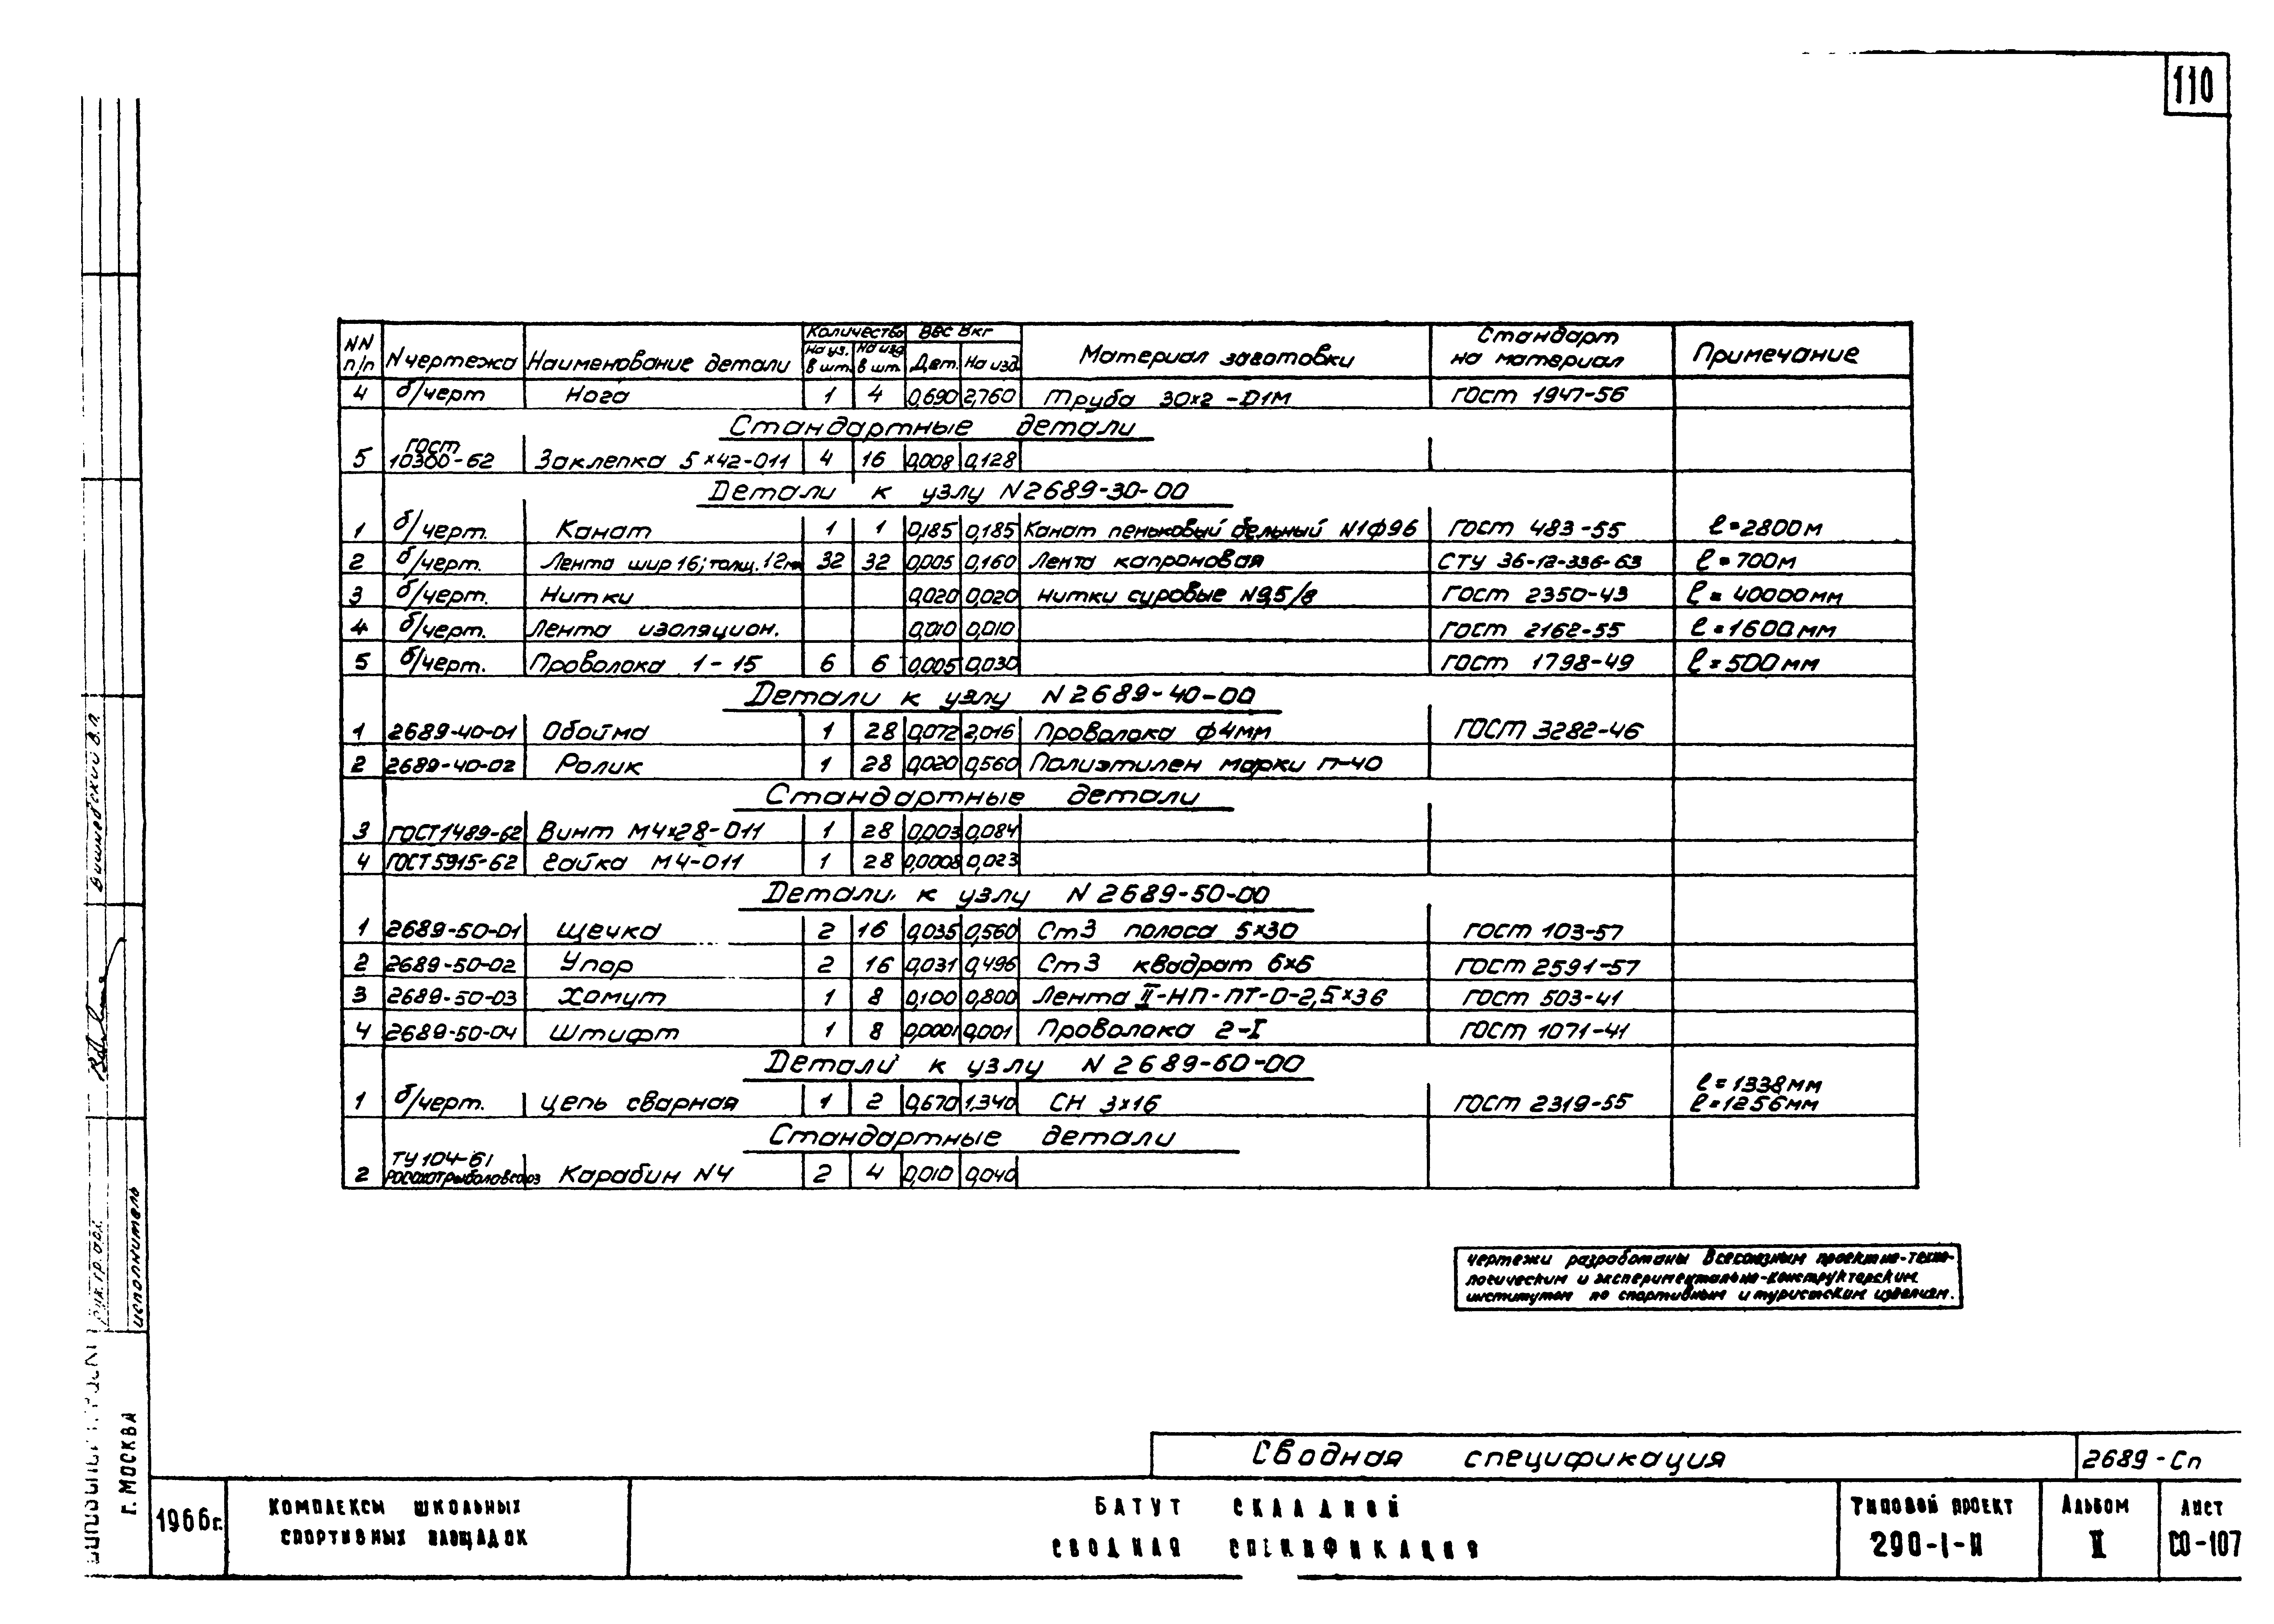 110
NN п/п N чертежа Наименование детали Количество На уз. в шт. На изд в шт. Вес в кг Дет. На изд Материал заготовки Стандарт на материал Примечание
4 б/черт Нога 1 4 0,690 2,760 Труба 30×2 -Д1М ГОСТ 1947-56
Стандартные детали
5 ГОСТ 10300-62 Заклепка 5×42-011 4 16 0,008 0,128
Детали к узлу N 2689-30-00
1 б/черт. Канат 1 1 0,185 0,185 Канат пеньковый бельный N1ф96 ГОСТ 483-55 ℓ=2800м
2 б/черт. Лента шир 16; толщ. 12мм 32 32 0,005 0,160 Лента капроновая СТУ 36-12-336-63 ℓ=700м
3 б/черт. Нитки 0,020 0,020 Нитки суровые N9,5/8 ГОСТ 2350-43 ℓ=40000мм
4 б/черт. Лента изоляцион. 0,010 0,010 ГОСТ 2162-55 ℓ=1600мм
5 б/черт. Проволока 1-15 6 6 0,005 0,030 ГОСТ 1798-49 ℓ=500мм
Детали к узлу N 2689-40-00
1 2689-40-01 Обойма 1 28 0,072 2,016 Проволока ф4мм ГОСТ 3282-46
2 2689-40-02 Ролик 1 28 0,020 0,560 Полиэтилен марки П-40
Стандартные детали
3 ГОСТ 1489-62 Винт М4×28-011 1 28 0,003 0,084
4 ГОСТ 5915-62 Гайка М4-011 1 28 0,0008 0,023
Детали к узлу N 2689-50-00
1 2689-50-01 Щечка 2 16 0,035 0,560 Ст3 полоса 5×30 ГОСТ 103-57
2 2689-50-02 Упор 2 16 0,031 0,496 Ст3 квадрат 6×6 ГОСТ 2591-57
3 2689-50-03 Хомут 1 8 0,100 0,800 Лента II-НП-ПТ-О-2,5×36 ГОСТ 503-41
4 2689-50-04 Штифт 1 8 0,0001 0,001 Проволока 2-I ГОСТ 1071-41
Детали к узлу N 2689-60-00
1 б/черт. Цепь сварная 1 2 0,670 1,340 СН 3×16 ГОСТ 2319-55 ℓ=1338мм ℓ=1256мм
Стандартные детали
2 ТУ 104-61 Росохотрыболовсоюз Карабин N4 2 4 0,010 0,040
Чертежи разработаны Всесоюзным проектно-техно-
логическим и экспериментально-конструкторским
институтом по спортивным и туристским изделиям.
Вишневский В.П.
рук. гр. арх.
исполнитель
г. Москва
Сводная спецификация 2689-Сп
1966г.
Комплексы школьных
спортивных площадок
Батут складной
Сводная спецификация
Типовой проект
290-1-II
Альбом
II
Лист
СО-107